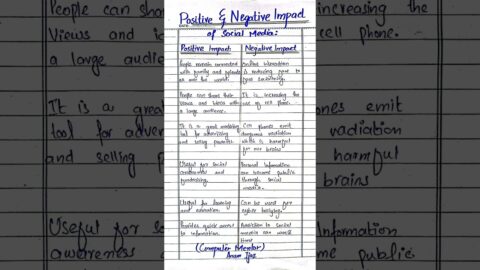 Positive & Negative Impact
of Social Media:
Positive Impact
Negative Impact
People remain connected
with family and
all over the world.
is reducing
People can share their
views and ideas with
a large audience.
It is increasing the
use of cell phone.
It is a good marketing
tool for advertising
and selling products.
Cell phones emit
dangerous radiation
which is harmful
for our brains
Useful for social
awareness and
fundraising.
Personal Information
can become public
through social
media.
Useful for learning
and education.
Can be used for
Provides quick access
to information.
Addiction to social
media can waste
time
(Computer Mentor)
Anam Ijaz
People can sha
Views and i
a large audie
It is a grea
tool for adver
and selling p
Useful for so
awareness a
increasing the
cell phone.
ones emit
radiation
harmful
brains
Information
me public